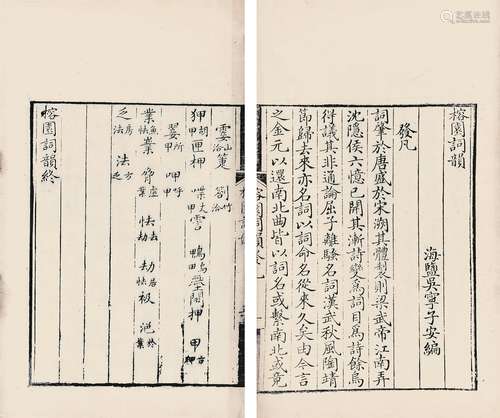 榕園詞韻
海鹽吳寧子安編
發凡
詞肇於唐盛於宋溯其體製則梁武帝江南弄
沈隱侯六憶已開其漸詩變爲詞目爲詩餘烏
得議其非通論屈子離騷名詞漢武秋風陶靖
節歸去來亦名詞以詞命名從來久矣由今言
之金元以還南北曲皆以詞名或繫南北或竟
霎山洽箑劄竹洽
狎胡甲匣柙喋丈甲鴨烏甲壓閘押甲古狎
翣所甲呷呼甲
業魚怯脅虛業怯去劫劫居怯衱浥於業
乏房法法方乏
榕園詞韻終